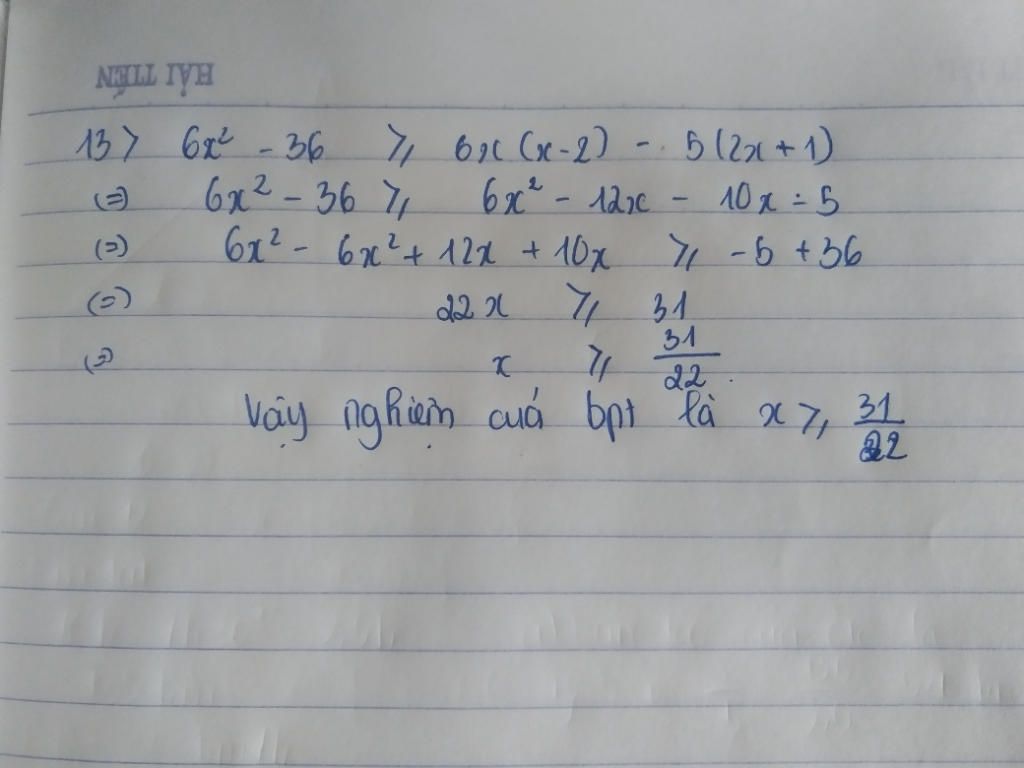 HẢI TIẾN
13> 6x² - 36 ≥ 6x(x-2) - 5(2x+1)
(=) 6x² - 36 ≥ 6x² - 12x - 10x - 5
(=) 6x² - 6x² + 12x + 10x ≥ -5 + 36
(=) 22x ≥ 31
(=) x ≥ 31/22.
Vậy nghiệm cuả bpt là x ≥ 31/22